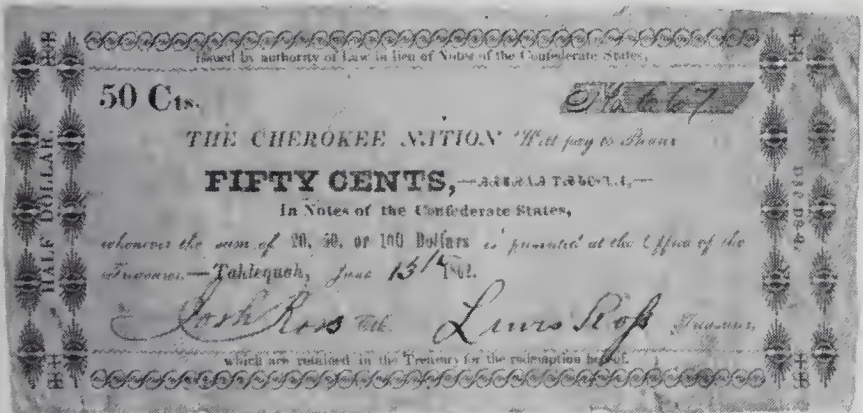 Issued by authority of Law in lieu of Notes of the Confederate States,
50 Cts.
THE CHEROKEE NATION Will pay to Bearer
FIFTY CENTS,
In Notes of the Confederate States,
whenever the sum of 20, 50, or 100 Dollars is presented at the Office of the
Treasurer.—Tahlequah, June 13th 1862.
Josh Ross Lewis Ross Treasurer,
which are retained in the Treasury for the redemption hereof.
HALF DOLLAR.